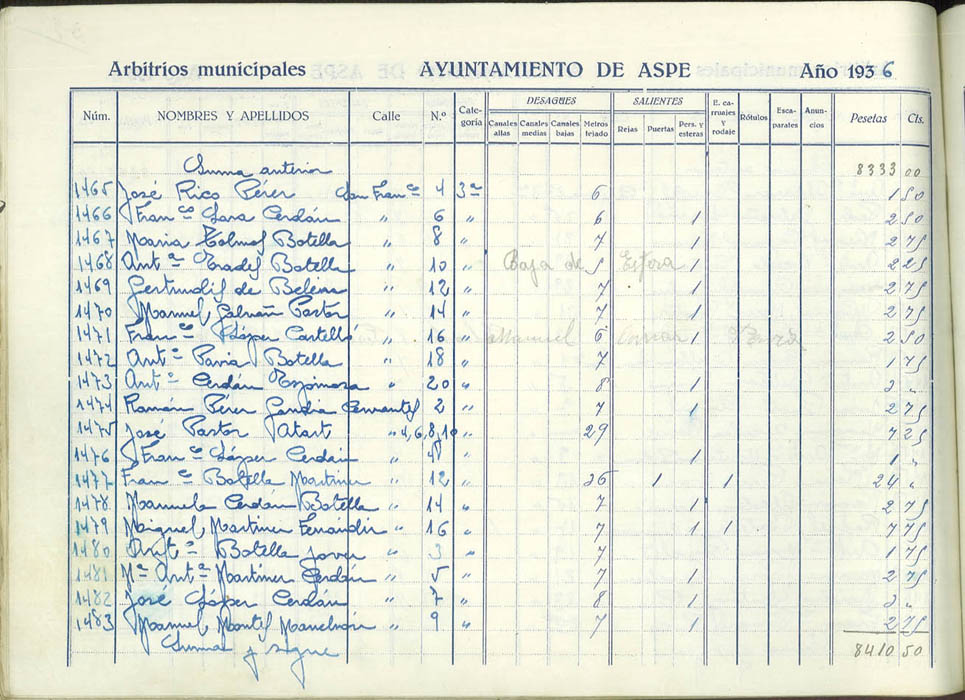 Arbitrios municipales AYUNTAMIENTO DE ASPE Año 1936
Núm. NOMBRES Y APELLIDOS Calle N.º Categoría DESAGUES Canales altas Canales medias Canales bajas Metros tejado SALIENTES Rejas Puertas Pers. y esteras E. carruajes y rodaje Rótulos Escaparates Anuncios Pesetas Cts.
Suma anterior 8333 00
1465 José Rico Pérez San Franco 4 3ª 6 1 50
1466 Franco Lara Cerdán " 6 " 6 1 2 50
1467 Maria Botella " 8 " 7 1 2 75
1468 Antª Botella " 10 " Baja de 5 Estera 1 2 25
1469 Gertrudis de Beléna " 12 " 7 1 2 75
1470 Manuel Galvañ Pastor " 14 " 7 1 2 75
1471 Franco López Castelló " 16 " Manuel 6 1 2 50
1472 Antº Pavia Botella " 18 " 7 1 75
1473 Antº Cerdán Espinosa " 20 " 8 1 3 "
1474 Ramón Pérez Gandia Cervantes 2 " 7 1 2 75
1475 José Pastor " 4,6,8,10 " 29 7 25
1476 Franco López Cerdán " " 1 1 "
1477 Franco Botella Martinez " 12 " 36 1 1 24 "
1478 Manuela Cerdán Botella " 14 " 7 1 2 75
1479 Miguel Martinez " 16 " 7 1 1 7 75
1480 Antª Botella Jover " 3 " 7 1 75
1481 Mª Antª Martinez Cerdán " 5 " 7 1 2 75
1482 José López Cerdán " 7 " 8 1 3 "
1483 Manuel " 9 " 7 1 2 75
Suma y sigue 8410 50